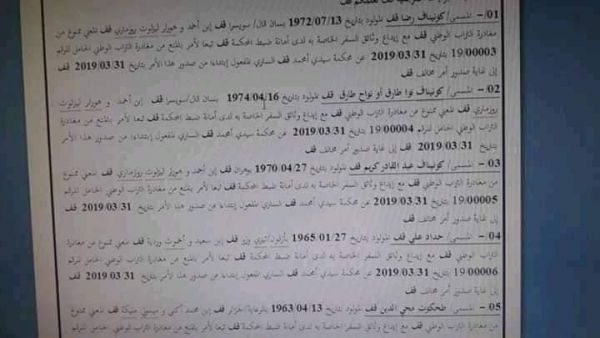 01/ – المسمى/ كونيناف رضا قف المولود بتاريخ 1972/07/13 بسان قال/ سويسرا قف إبن أحمد و هورلر ليزلوت روزماري قف المعني ممنوع من
مغادرة التراب الوطني قف مع إيداع وثائق السفر الخاصة به لدى أمانة ضبط المحكمة قف تبعا لأمر بالمنع من مغادرة التراب الوطني الحامل للرقم
19/00003 بتاريخ 2019/03/31 عن محكمة سيدي أمحمد قف الساري المفعول إبتداءا من صدور هذا الأمر بتاريخ 2019/03/31 قف
إلى غاية صدور أمر مخالف قف
02– المسمى/ كونيناف نوا طارق أو نواح طارق قف المولود بتاريخ 1974/04/16 بسان قال/سويسرا قف إبن أحمد و هورلر ليزلوت
روزماري قف المعني ممنوع من مغادرة التراب الوطني قف مع إيداع وثائق السفر الخاصة به لدى أمانة ضبط المحكمة قف تبعا لأمر بالمنع من مغادرة
التراب الوطني الحامل للرقم 19/00004 بتاريخ 2019/03/31 عن محكمة سيدي أمحمد قف الساري المفعول إبتداءا من صدور هذا الأمر
بتاريخ 2019/03/31 قف إلى غاية صدور أمر مخالف قف
03 – المسمى/ كونيناف عبد القادر كريم قف المولود بتاريخ 1970/04/27 بوهران قف إبن أحمد و هورلر ليزلوت روزماري قف المعني ممنوع
من مغادرة التراب الوطني قف مع إيداع وثائق السفر الخاصة به لدى أمانة ضبط المحكمة قف تبعا لأمر بالمنع من مغادرة التراب الوطني الحامل للرقم
19/00005 بتاريخ 2019/03/31 عن محكمة سيدي أمحمد قف الساري المفعول إبتداءا من صدور هذا الأمر بتاريخ 2019/03/31 قف
إلى غاية صدور أمر مخالف قف
04– المسمى/ حداد علي قف المولود بتاريخ 1965/01/27 بأزفون/تيزي وزو قف إبن سعيد و وردية قف المعني ممنوع من
مغادرة التراب الوطني قف مع إيداع وثائق السفر الخاصة به لدى أمانة ضبط المحكمة قف تبعا لأمر بالمنع من مغادرة التراب الوطني الحامل للرقم
19/00006 بتاريخ 2019/03/31 عن محكمة سيدي أمحمد قف الساري المفعول إبتداءا من صدور هذا الأمر بتاريخ 2019/03/31 قف
إلى غاية صدور أمر مخالف قف
05– المسمى/ طحكوت محي الدين قف المولود بتاريخ 1963/04/13 بالرغاية/الجزائر قف إبن محمد أكلي و مليكة قف المعني ممنوع
من مغادرة التراب الوطني قف مع إيداع وثائق السفر الخاصة به لدى أمانة ضبط المحكمة قف تبعا لأمر بالمنع من مغادرة التراب الوطني الحامل للرقم